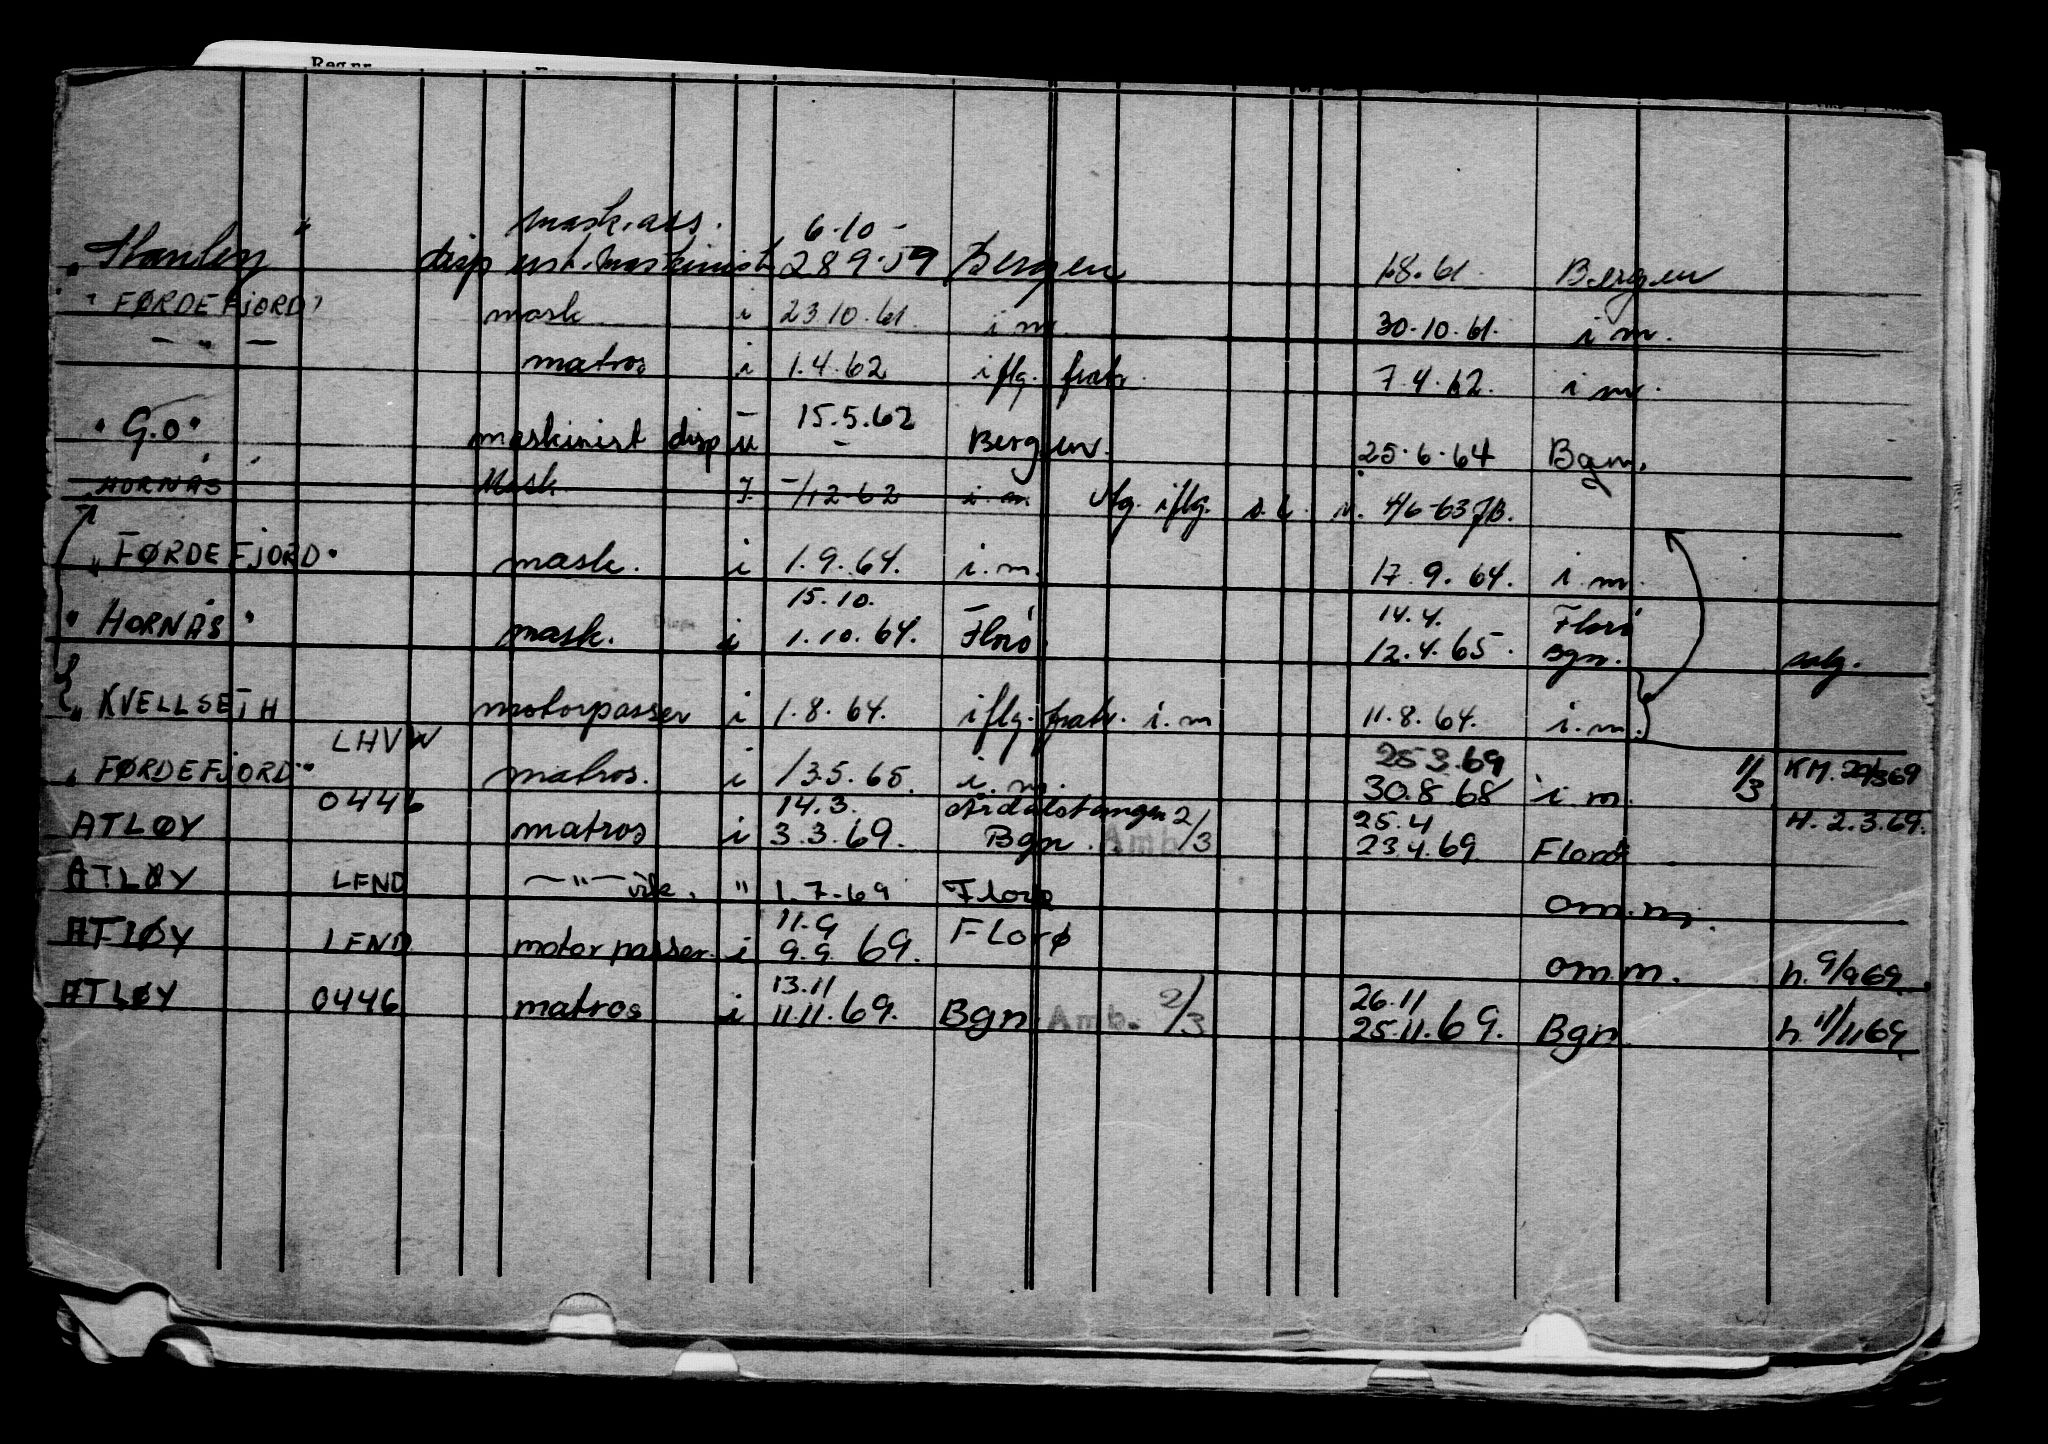 Reg.nr.
mask.ass. 6.10 -
"Stanley" disp urst. maskinist 28 9.59 Bergen 1.8.61. Bergen
"FØRDEFJORD" mask i 23 10.61. i m. 30.10.61. i m.
— " — matros i 1.4.62 iflg. frakr. 7.4.62. i m.
"G.O" maskinist disp u 15.5.62 - Bergen. 25.6.64 Bgn.
HORNÅS Mask i -/12-62 i. m. iflg. 4/6-63
"FØRDEFJORD" mask. i 1.9.64. i.m. 17.9.64. i.m.
15.10. 14.4. Florø
"HORNÅS" mask. i 1.10.64. Florø 12.4.65. Bgn. salg.
"KVELLSETH motorpasser i 1.8.64. iflg. frakr. i.m 11.8.64. i.m.
LHVW 25 3.69
"FØRDEFJORD" matros. i 13.5.65. i.m. 30.8.68 i m. 11/3 KM. 20/3 69
0446 14.3. Årdalstangen 25.4 H. 2.3.69.
ATLØY matros i 3.3.69. Bgn. Amb. 2/3 23.4.69 Florø
ATLØY LEND — " — vik. " 1.7.69 Florø om.m.
11.9
ATLØY LEND motorpasser. i 9.9.69. Florø om.m. h. 9/9 69
13.11 26.11
ATLØY 0446 matros i 11.11.69. Bgn Amb. 2/3 25.11.69. Bgn h. 11/11 69